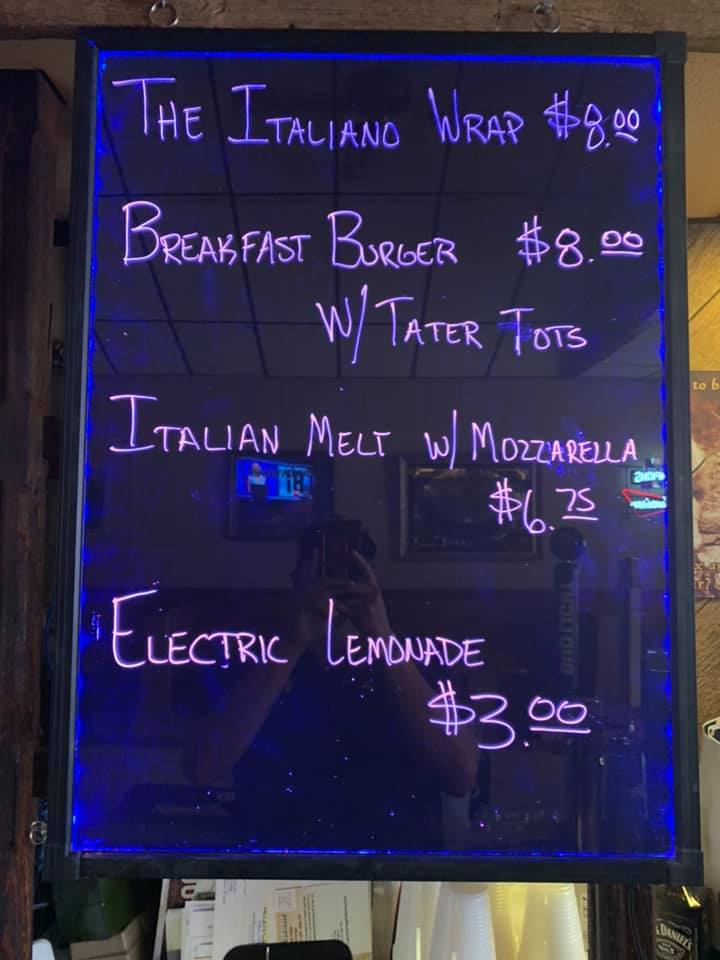 THE ITALIANO WRAP $8.00
BREAKFAST BURGER $8.00
W/ TATER TOTS
ITALIAN MELT W/ MOZZARELLA
$6.75
ELECTRIC LEMONADE
$3.00
to b
DANIEL'S